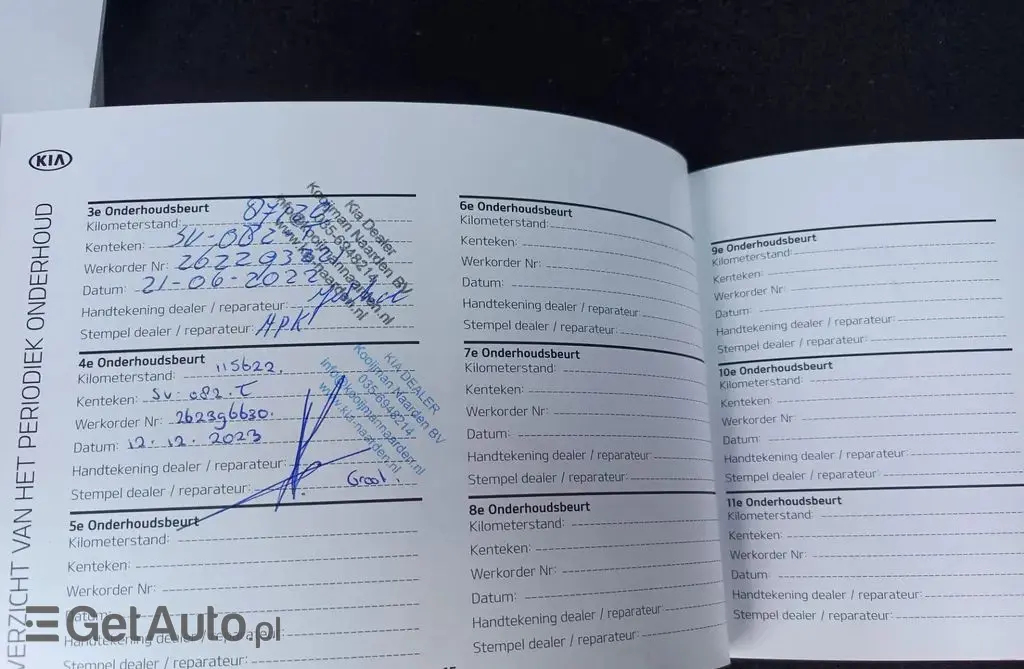 KIA
OVERZICHT VAN HET PERIODIEK ONDERHOUD
3e Onderhoudsbeurt
Kilometerstand:
Kenteken: SV-082
Werkorder Nr:
Datum: 21-06-2022
Handtekening dealer / reparateur:
Stempel dealer / reparateur: APK
Kia Dealer
Kooijman Naarden BV
035-6948214
info@kooijmannaarden.nl
www.kia-naarden.nl
4e Onderhoudsbeurt
Kilometerstand: 115622.
Kenteken: SV-082.T
Werkorder Nr: 262396630.
Datum: 12.12.2023
Handtekening dealer / reparateur:
Stempel dealer / reparateur: Groot.
KIA DEALER
Kooijman Naarden BV
035-6948214
info@kooijmannaarden.nl
www.kia-naarden.nl
5e Onderhoudsbeurt
Kilometerstand:
Kenteken:
Werkorder Nr:
Datum:
Handtekening dealer / reparateur:
Stempel dealer / reparateur:
6e Onderhoudsbeurt
Kilometerstand:
Kenteken:
Werkorder Nr:
Datum:
Handtekening dealer / reparateur:
Stempel dealer / reparateur:
7e Onderhoudsbeurt
Kilometerstand:
Kenteken:
Werkorder Nr:
Datum:
Handtekening dealer / reparateur:
Stempel dealer / reparateur:
8e Onderhoudsbeurt
Kilometerstand:
Kenteken:
Werkorder Nr:
Datum:
Handtekening dealer / reparateur:
Stempel dealer / reparateur:
9e Onderhoudsbeurt
Kilometerstand:
Kenteken:
Werkorder Nr:
Datum:
Handtekening dealer / reparateur:
Stempel dealer / reparateur:
10e Onderhoudsbeurt
Kilometerstand:
Kenteken:
Werkorder Nr:
Datum:
Handtekening dealer / reparateur:
Stempel dealer / reparateur:
11e Onderhoudsbeurt
Kilometerstand:
Kenteken:
Werkorder Nr:
Datum:
Handtekening dealer / reparateur:
Stempel dealer / reparateur:
GetAuto.pl